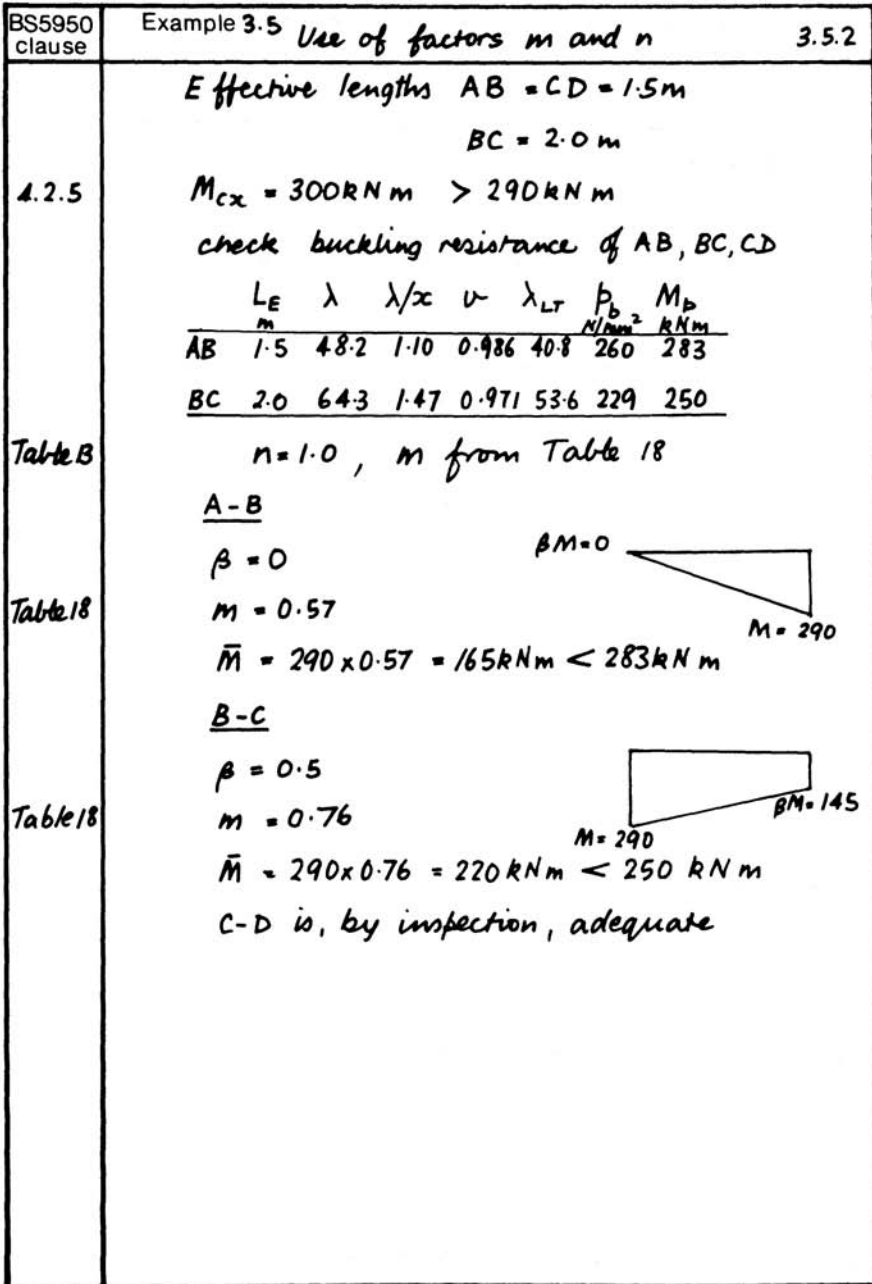 BS5950 clause Example 3.5 Use of factors m and n 3.5.2
Effective lengths AB = CD = 1.5m
BC = 2.0 m
4.2.5 Mcx = 300kNm > 290kNm
check buckling resistance of AB, BC, CD
LE m λ λ/x v λLT pb N/mm² Mb kNm
AB 1.5 48.2 1.10 0.986 40.8 260 283
BC 2.0 64.3 1.47 0.971 53.6 229 250
Table B n=1.0, m from Table 18
A-B
β = 0 βM=0
Table 18 m = 0.57
M= 290
M̄ = 290 x 0.57 = 165kNm < 283kNm
B-C
β = 0.5
βM=145
Table 18 m = 0.76
M= 290
M̄ = 290x0.76 = 220kNm < 250 kNm
C-D is, by inspection, adequate